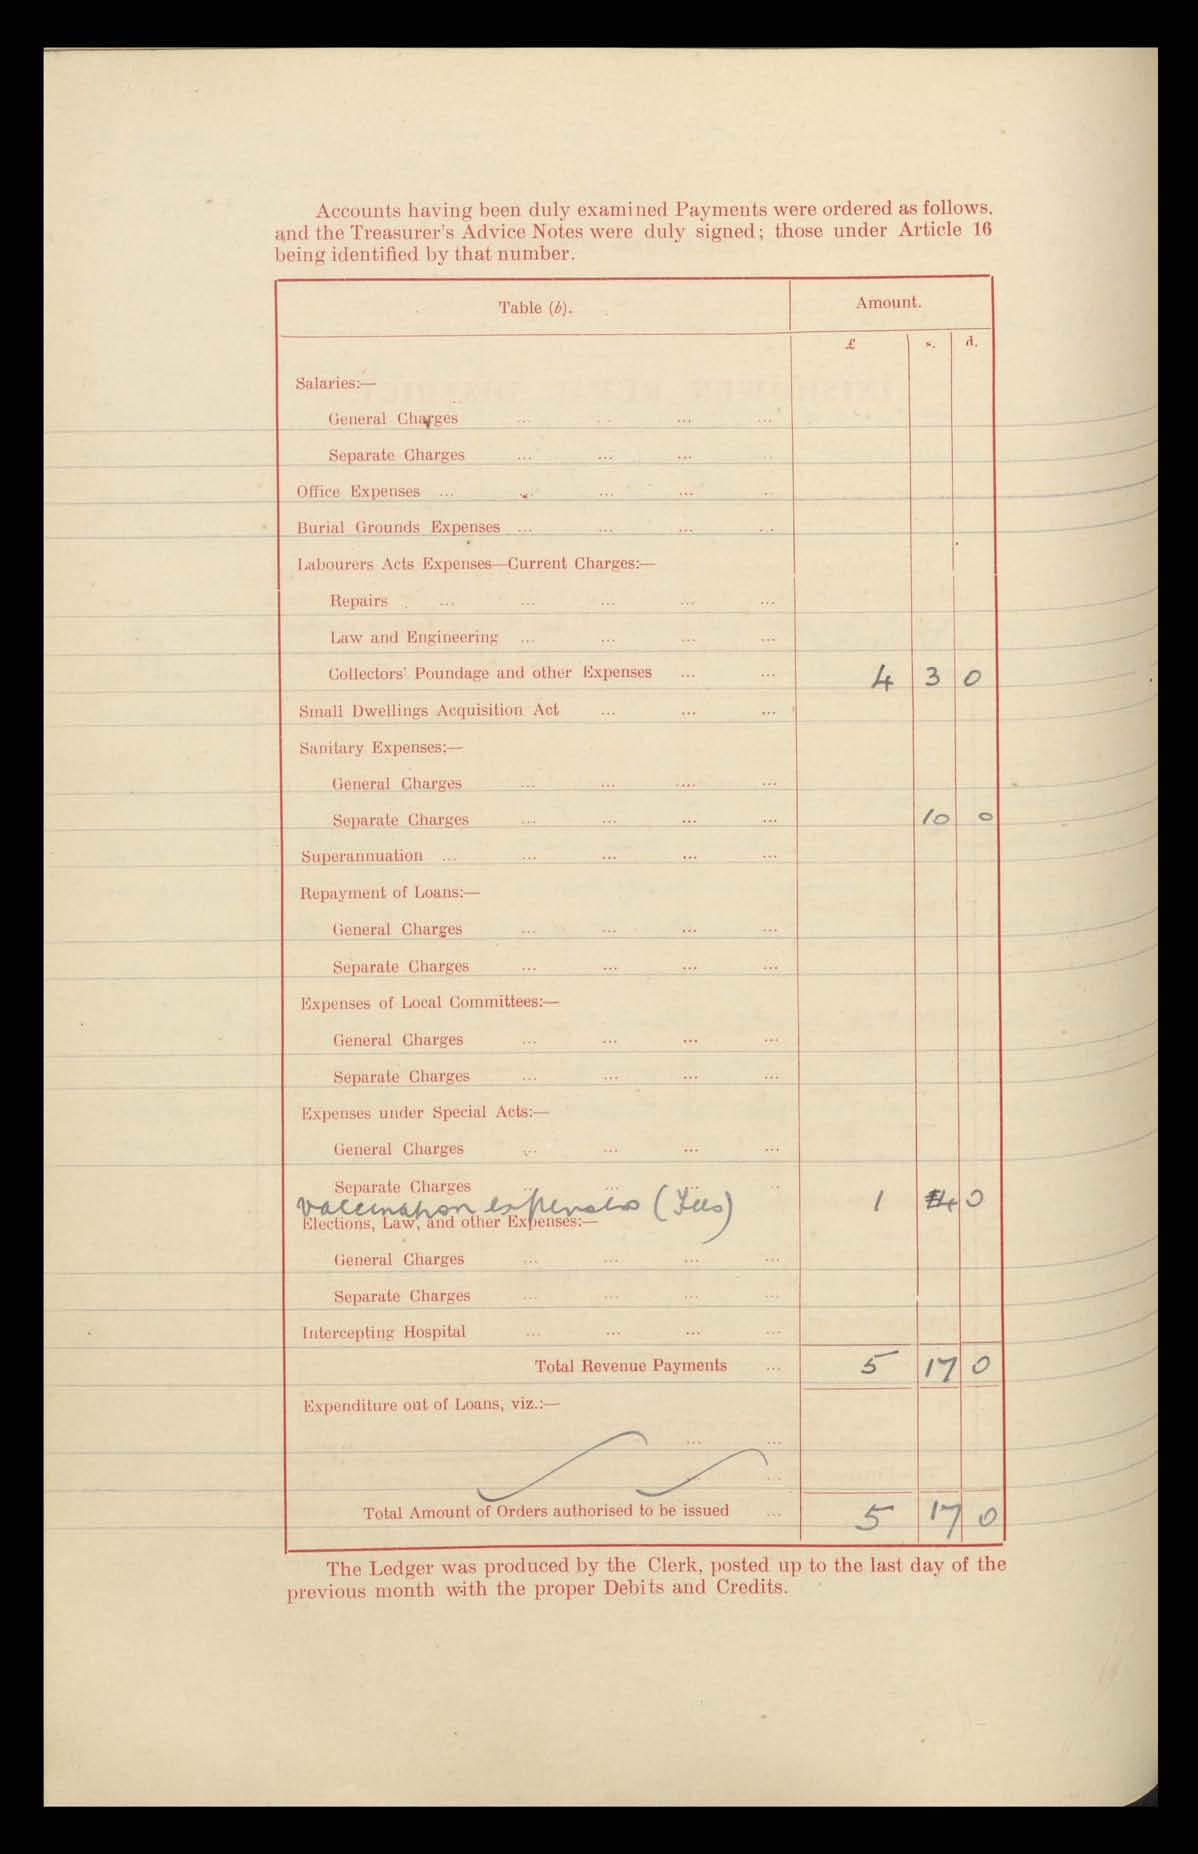 Accounts having been duly examined Payments were ordered as follows,
and the Treasurer's Advice Notes were duly signed; those under Article 16
being identified by that number.
Table (b). Amount.
£ s. d.
Salaries:—
General Charges ... ... ... ...
Separate Charges ... ... ... ...
Office Expenses ... ... ... ... ...
Burial Grounds Expenses ... ... ... ...
Labourers Acts Expenses—Current Charges:—
Repairs ... ... ... ... ...
Law and Engineering ... ... ... ...
Collectors' Poundage and other Expenses ... ... 4 3 0
Small Dwellings Acquisition Act ... ... ...
Sanitary Expenses:—
General Charges ... ... ... ...
Separate Charges ... ... ... ... 10 0
Superannuation ... ... ... ... ...
Repayment of Loans:—
General Charges ... ... ... ...
Separate Charges ... ... ... ...
Expenses of Local Committees:—
General Charges ... ... ... ...
Separate Charges ... ... ... ...
Expenses under Special Acts:—
General Charges ... ... ... ...
Separate Charges ... ... ... ...
Vaccination expenses (Fees) 1 4 0
Elections, Law, and other Expenses:—
General Charges ... ... ... ...
Separate Charges ... ... ... ...
Intercepting Hospital ... ... ... ...
Total Revenue Payments ... 5 17 0
Expenditure out of Loans, viz.:—
... ...
... ...
Total Amount of Orders authorised to be issued ... 5 17 0
The Ledger was produced by the Clerk, posted up to the last day of the
previous month with the proper Debits and Credits.